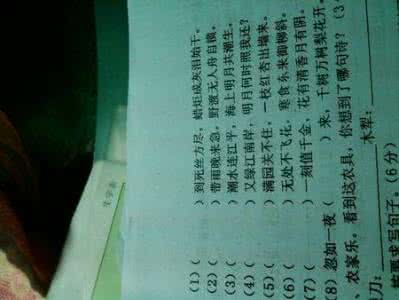 (1) ( )到死丝方尽，蜡炬成灰泪始干。
(2) ( )带雨晚来急，野渡无人舟自横。
(3) ( )潮水连江平，海上明月共潮生。
(4) ( )又绿江南岸，明月何时照我还?
(5) ( )满园关不住，一枝红杏出墙来。
(6) ( )无处不飞花，寒食东来御柳斜。
(7) ( )一刻值千金，花有清香月有阴。
(8) 忽如一夜( )来，千树万树梨花开。
、农家乐，看到这农具，你想到了哪句诗？(3
刀： 木犁：
按要求写句子。(6分)